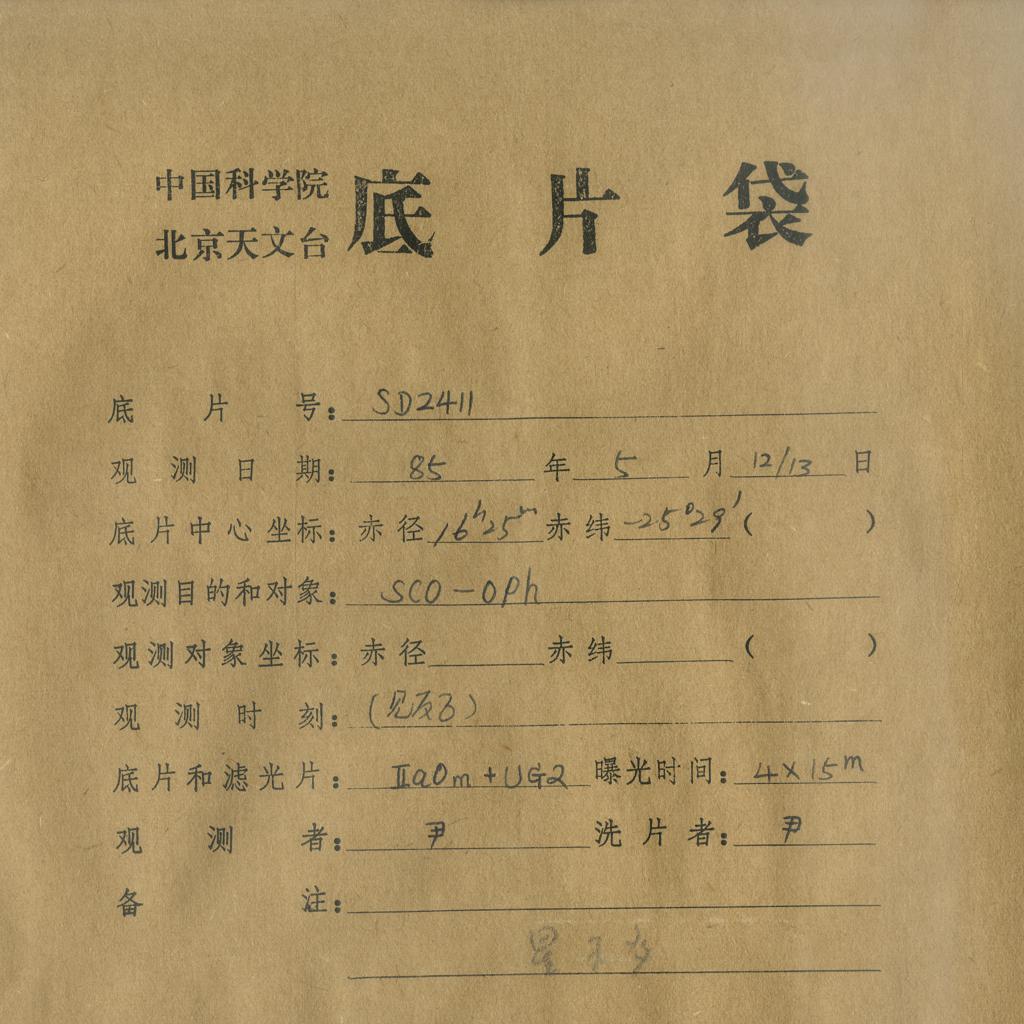 中国科学院
北京天文台
底片袋
底片号：SD2411
观测日期：85年5月12/13日
底片中心坐标：赤径16h25m赤纬-25°29′（ ）
观测目的和对象：SCO-OPh
观测对象坐标：赤径 赤纬 （ ）
观测时刻：(见反面)
底片和滤光片：ⅡaOm+UG2 曝光时间：4×15m
观测者：尹 洗片者：尹
备注：
星不多